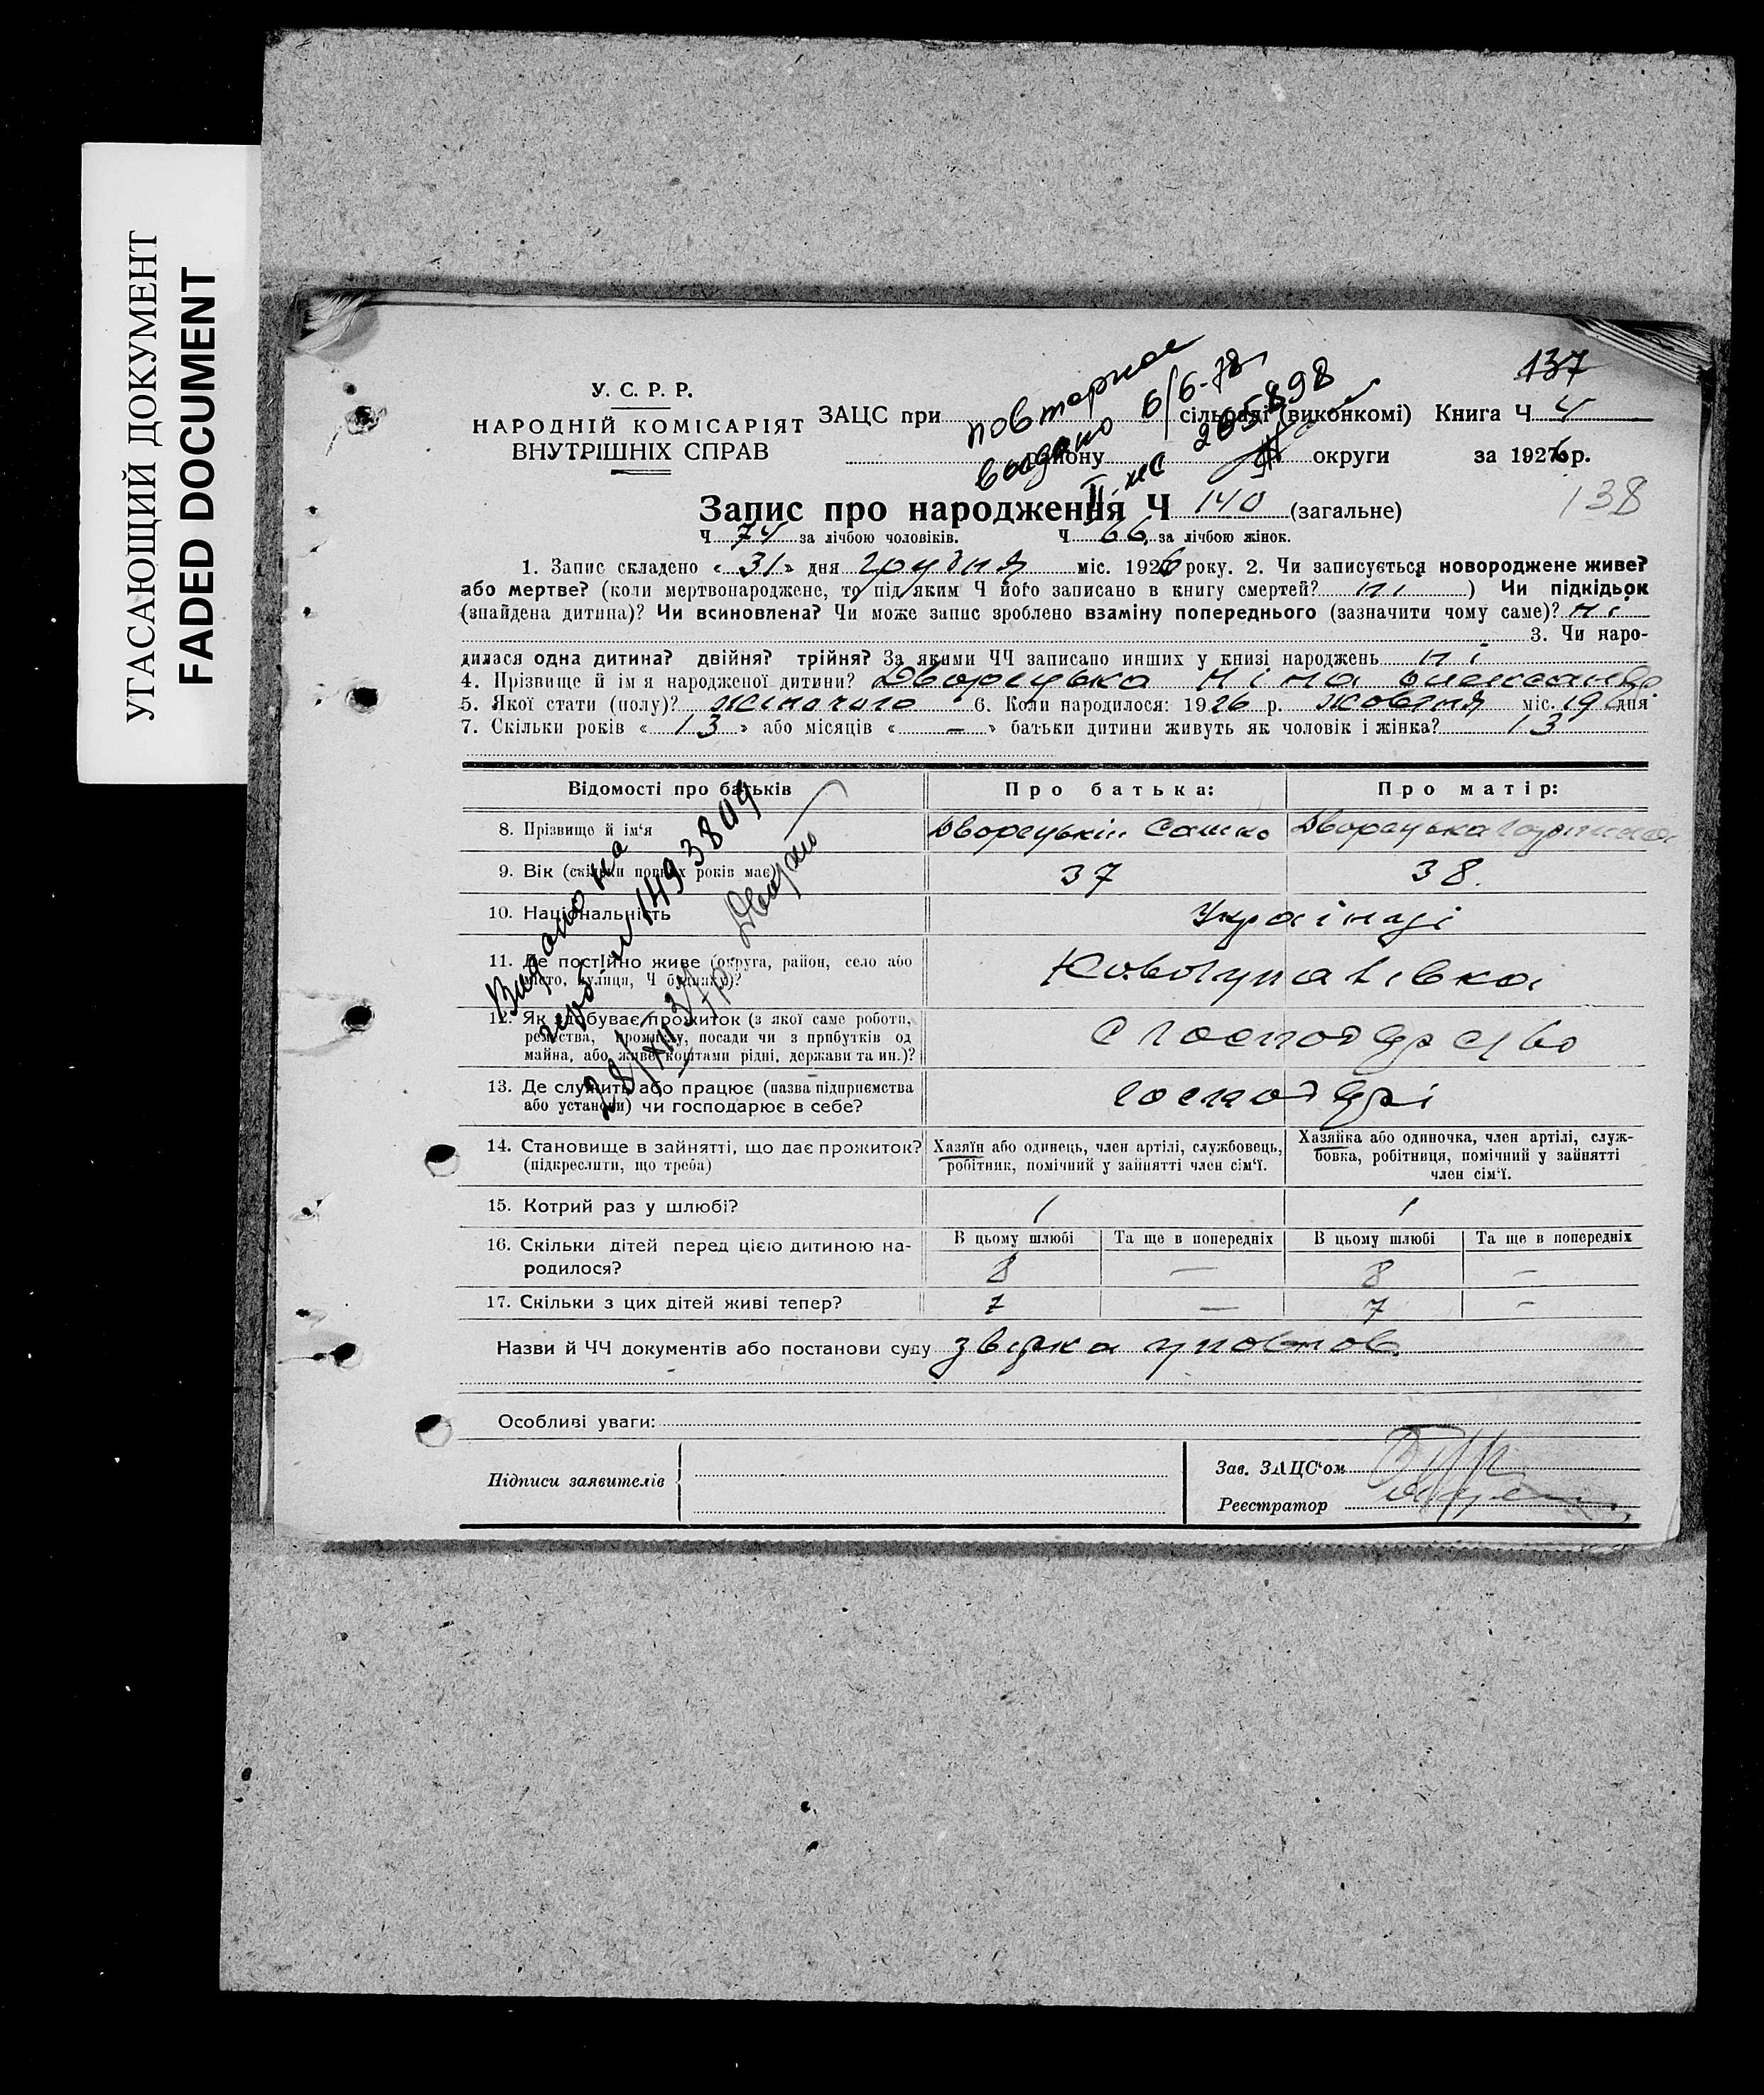 УГАСАЮЩИЙ ДОКУМЕНТ
FADED DOCUMENT
137
У. С. Р. Р.
НАРОДНІЙ КОМІСАРІЯТ
ВНУТРІШНІХ СПРАВ
повторное
выдано 6/6-78
II 265898
ЗАЦС при сільраді (виконкомі) Книга Ч 4
району округи за 1926 р.
138
Запис про народження Ч 140 (загальне)
Ч 74 за лічбою чоловіків. Ч 66 за лічбою жінок.
1. Запис складено « 31 » дня грудня міс. 1926 року. 2. Чи записується новороджене живе?
або мертве? (коли мертвонароджене, то під яким Ч його записано в книгу смертей? ні ) Чи підкідьок
(знайдена дитина)? Чи всиновлена? Чи може запис зроблено взаміну попереднього (зазначити чому саме)? ні
3. Чи наро-
дилася одна дитина? двійня? трійня? За якими ЧЧ записано инших у книзі народжень ні
4. Прізвище й ім я народженої дитини? Дворецька Ніна
5. Якої стати (полу)? жіночого 6. Коли народилося: 1926 р. жовтня міс. 19 дня
7. Скільки років « 13 » або місяців « — » батьки дитини живуть як чоловік і жінка? 13
Відомості про батьків Про батька: Про матір:
8. Прізвище й ім‘я Дворецький Сашко Дворецька
9. Вік (скільки повних років має) 37 38.
10. Національність Українці
11. Де постійно живе (округа, район, село або
місто, вулиця, Ч будинку)?
12. Як здобуває прожиток (з якої саме роботи,
ремества, промислу, посади чи з прибутків од
майна, або живе коштами рідні, держави та ин.)?
С господарство
13. Де служить або працює (назва підприємства
або установи) чи господарює в себе?
господарі
14. Становище в зайнятті, що дає прожиток?
(підкреслити, що треба)
Хазяїн або одинець, член артілі, службовець,
робітник, помічний у зайнятті член сім‘ї.
Хазяйка або одиночка, член артілі, служ-
бовка, робітниця, помічний у зайнятті
член сім‘ї.
15. Котрий раз у шлюбі? 1 1
16. Скільки дітей перед цією дитиною на-
родилося?
В цьому шлюбі Та ще в попередніх В цьому шлюбі Та ще в попередніх
8 — 8 —
17. Скільки з цих дітей живі тепер? 7 — 7 —
Видано на
1493809
28/XII 37р.
Назви й ЧЧ документів або постанови суду
Особливі уваги:
Підписи заявителів
Зав. ЗАЦС‘ом
Реєстратор